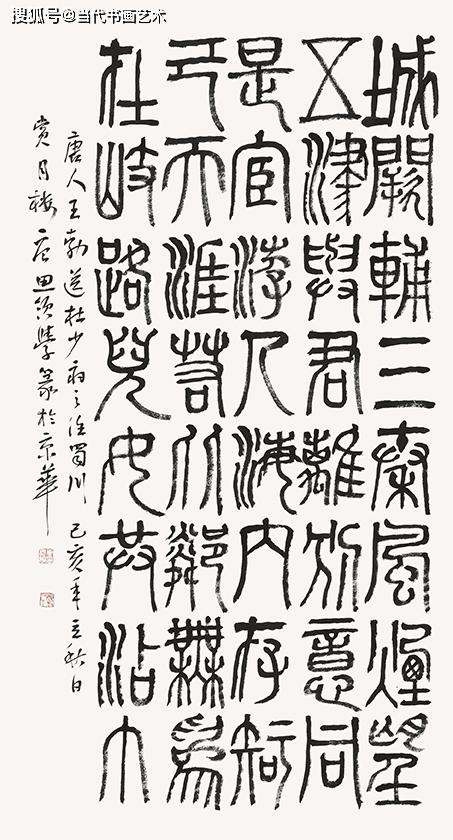 搜狐号@当代书画艺术
城闕輔三秦風煙望
五津與君離別意同
是宦游人海内存知
己天涯若比鄰無為
在岐路兒女共沾巾
唐人王勃送杜少府之任蜀川 己亥年立秋日
賞月樓 田領學篆於京華